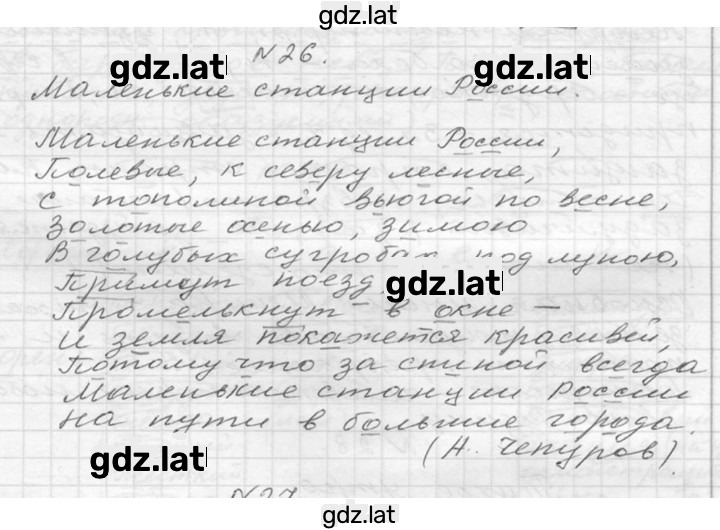 gdz.lat
№26.
gdz.lat gdz.lat
Маленькие станции России.
Маленькие станции России,
Полевые, к северу лесные,
С тополиной вьюгой по весне,
Золотые осенью, зимою
В голубых сугробах под луною,
Примут поезд
gdz.lat
Промелькнут в окне —
И земля покажется красивей,
Потому что за спиной всегда
Маленькие станции России
на пути в большие города.
gdz.lat
(А. Чепуров)
№27
gdz.lat